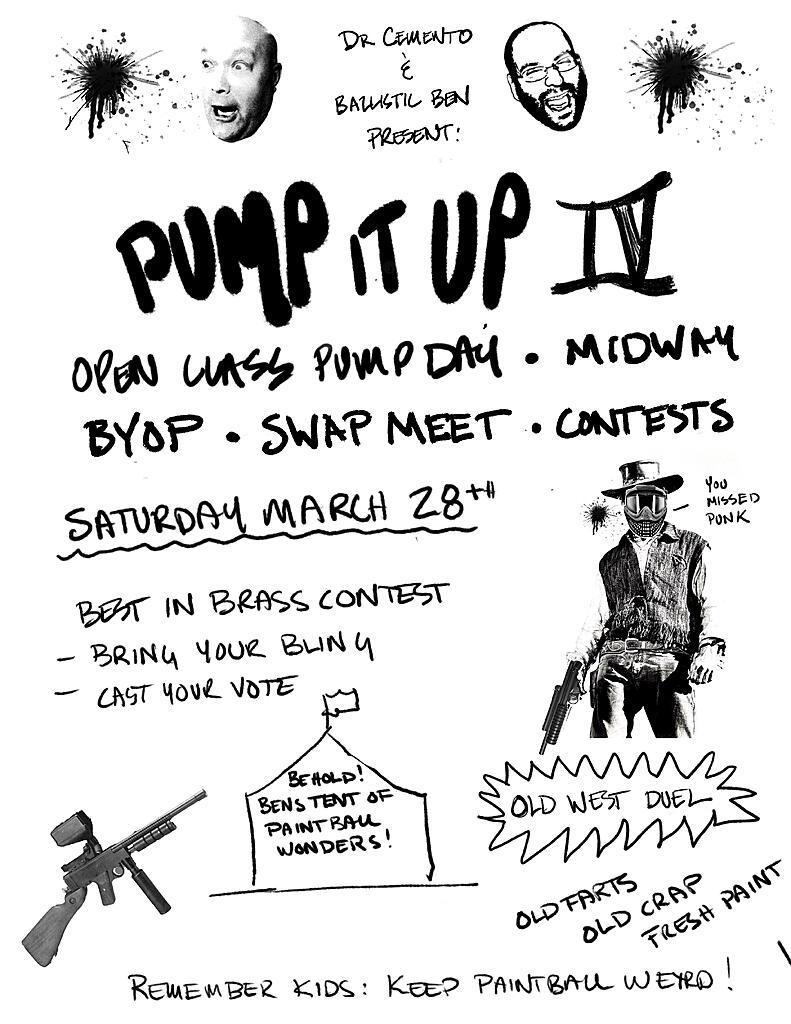 DR CEMENTO
&
BALLISTIC BEN
PRESENT:
PUMP IT UP IV
OPEN CLASS PUMP DAY • MIDWAY
BYOP • SWAP MEET • CONTESTS
SATURDAY MARCH 28TH
YOU
MISSED
PUNK
BEST IN BRASS CONTEST
- BRING YOUR BLING
- CAST YOUR VOTE
BEHOLD!
BENS TENT OF
PAINTBALL
WONDERS!
OLD WEST DUEL
OLD FARTS
OLD CRAP
FRESH PAINT
REMEMBER KIDS: KEEP PAINTBALL WEYRD!